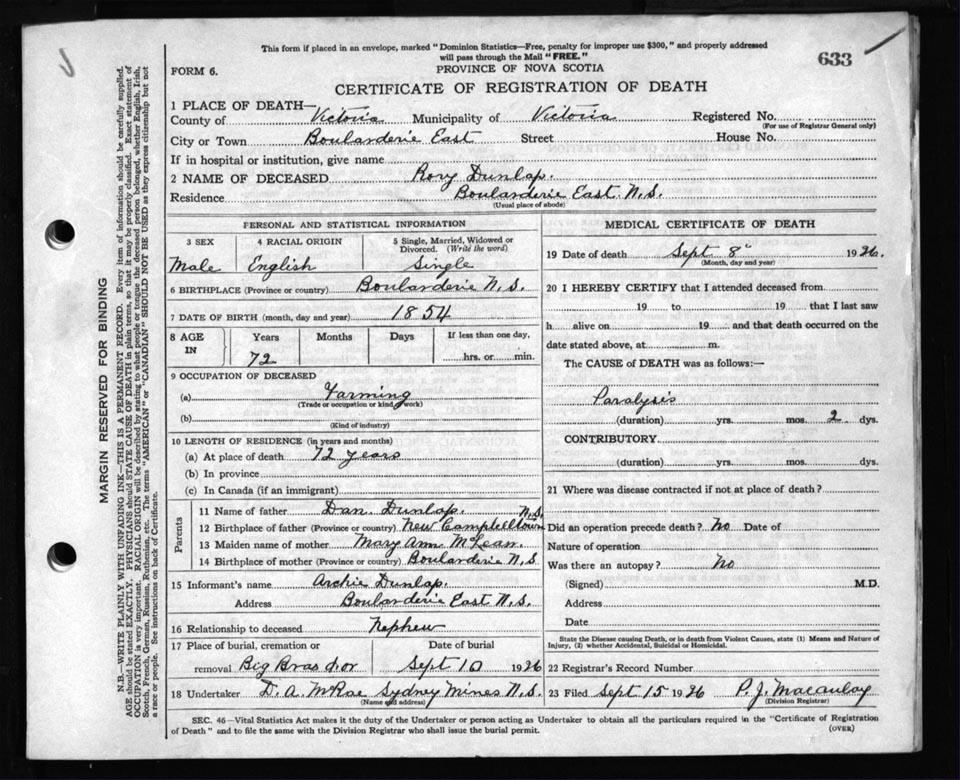 This form if placed in an envelope, marked "Dominion Statistics—Free, penalty for improper use $300," and properly addressed
will pass through the Mail "FREE."
633
FORM 6.
PROVINCE OF NOVA SCOTIA
CERTIFICATE OF REGISTRATION OF DEATH
1 PLACE OF DEATH—
County of Victoria Municipality of Victoria Registered No.
(For use of Registrar General only)
City or Town Boularderie East Street House No.
If in hospital or institution, give name
2 NAME OF DECEASED Rory Dunlap.
Residence Boularderie East N.S.
(Usual place of abode)
PERSONAL AND STATISTICAL INFORMATION
3 SEX 4 RACIAL ORIGIN 5 Single, Married, Widowed or
Divorced. (Write the word)
Male English Single
6 BIRTHPLACE (Province or country) Boularderie N.S.
7 DATE OF BIRTH (month, day and year) 1854
8 AGE Years Months Days If less than one day,
IN 72 hrs. or min.
9 OCCUPATION OF DECEASED
(a) Farming
(Trade or occupation or kind of work)
(b)
(Kind of industry)
10 LENGTH OF RESIDENCE (in years and months)
(a) At place of death 72 years
(b) In province
(c) In Canada (if an immigrant)
Parents
11 Name of father Dan. Dunlap. N.S.
12 Birthplace of father (Province or country) New Campbelltown
13 Maiden name of mother Mary Ann McLean.
14 Birthplace of mother (Province or country) Boularderie N.S
15 Informant's name Archie Dunlap.
Address Boularderie East N.S.
16 Relationship to deceased Nephew
17 Place of burial, cremation or Date of burial
removal Big Bras d'or Sept 10 1926
18 Undertaker D. A. McRae Sydney Mines N.S.
(Name and address)
MEDICAL CERTIFICATE OF DEATH
19 Date of death Sept 8" 1926.
(Month, day and year)
20 I HEREBY CERTIFY that I attended deceased from
19 to 19 that I last saw
h alive on 19 and that death occurred on the
date stated above, at m.
The CAUSE of DEATH was as follows:—
Paralysis
(duration) yrs. mos. 2 dys.
CONTRIBUTORY
(duration) yrs. mos. dys.
21 Where was disease contracted if not at place of death?
Did an operation precede death? No Date of
Nature of operation
Was there an autopsy? No
(Signed) M.D.
Address
Date
State the Disease causing Death, or in death from Violent Causes, state (1) Means and Nature of
Injury, (2) whether Accidental, Suicidal or Homicidal.
22 Registrar's Record Number
23 Filed Sept 15 1926 P. J. Macaulay
(Division Registrar)
SEC. 46—Vital Statistics Act makes it the duty of the Undertaker or person acting as Undertaker to obtain all the particulars required in the "Certificate of Registration
of Death" and to file the same with the Division Registrar who shall issue the burial permit. (OVER)
MARGIN RESERVED FOR BINDING
N.B.—WRITE PLAINLY WITH UNFADING INK—THIS IS A PERMANENT RECORD. Every item of information should be carefully supplied.
AGE should be stated EXACTLY. PHYSICIANS should STATE CAUSE OF DEATH in plain terms, so that it may be properly classified. Exact statement of
OCCUPATION is very important. RACIAL ORIGIN will be described by stating to what people or tongue the deceased person belonged, whether English, Irish,
Scotch, French, German, Russian, Ruthenian, etc. The terms "AMERICAN" or "CANADIAN" SHOULD NOT BE USED as they express citizenship but not
a race or people. See instructions on back of Certificate.